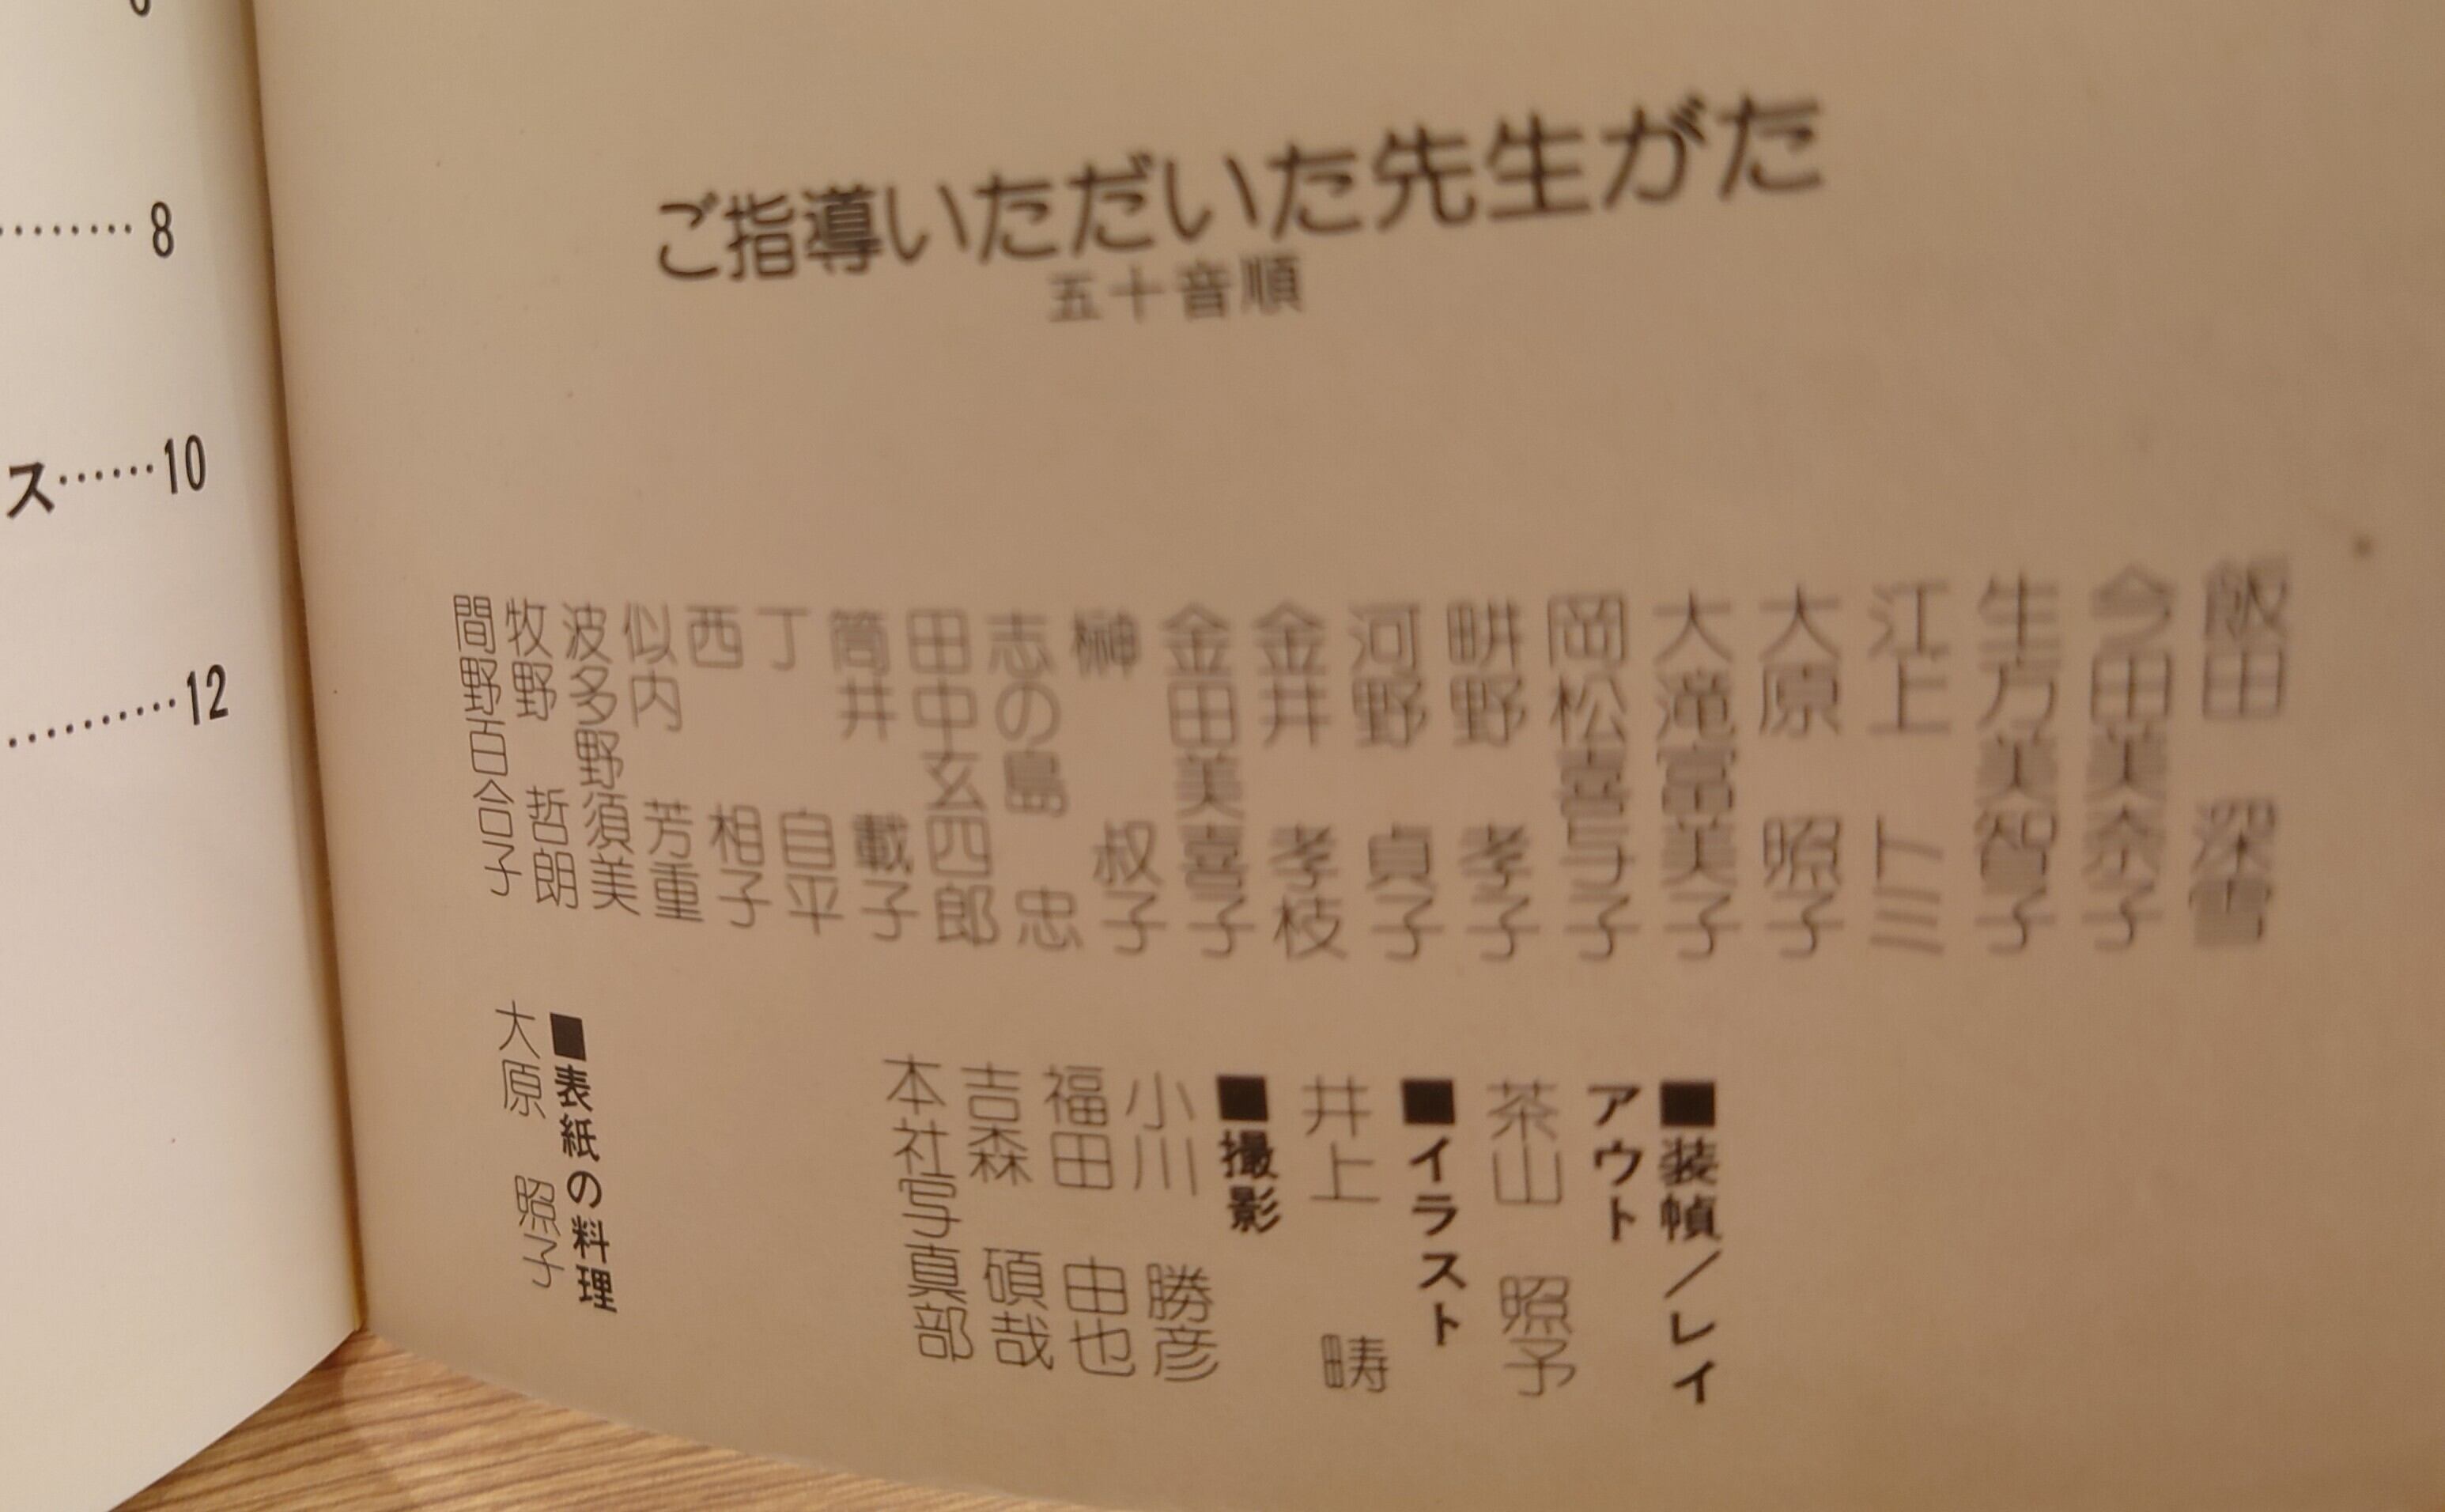 8
ス……10
………12
ご指導いただいた先生がた
五十音順
飯田 深雪
今田美奈子
生方美智子
江上 トミ
大原 照子
大滝富美子
岡松喜与子
畊野 孝子
河野 貞子
金井 孝枝
金田美喜子
榊 叔子
志の島 忠
田中玄四郎
筒井 載子
丁 自平
西 相子
似内 芳重
波多野須美
牧野 哲朗
間野百合子
■装幀／レイ
アウト
茶山 照予
■イラスト
井上 畴
■撮影
小川 勝彦
福田 由也
吉森 碩哉
本社写真部
■表紙の料理
大原 照子